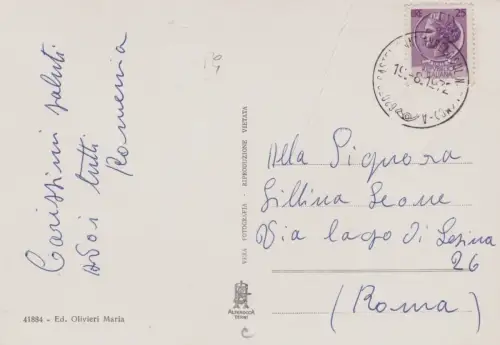 Carissimi saluti
a voi tutti
Romema
25
19-6-1972
Alla Signora
Lillina Leone
Via lago di Lesina
26
(Roma)
VERA FOTOGRAFIA - RIPRODUZIONE VIETATA
41884 - Ed. Olivieri Maria
ALTEROCCA
TERNI